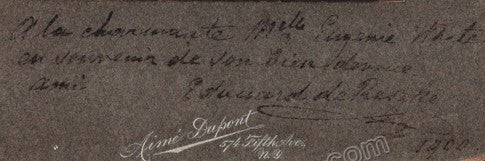 A la charmante Melle Eugénie White
en souvenir de son bien dévoué
ami
Edouard de Reszke
1900
Aimé Dupont
574 Fifth Ave.
N.Y.